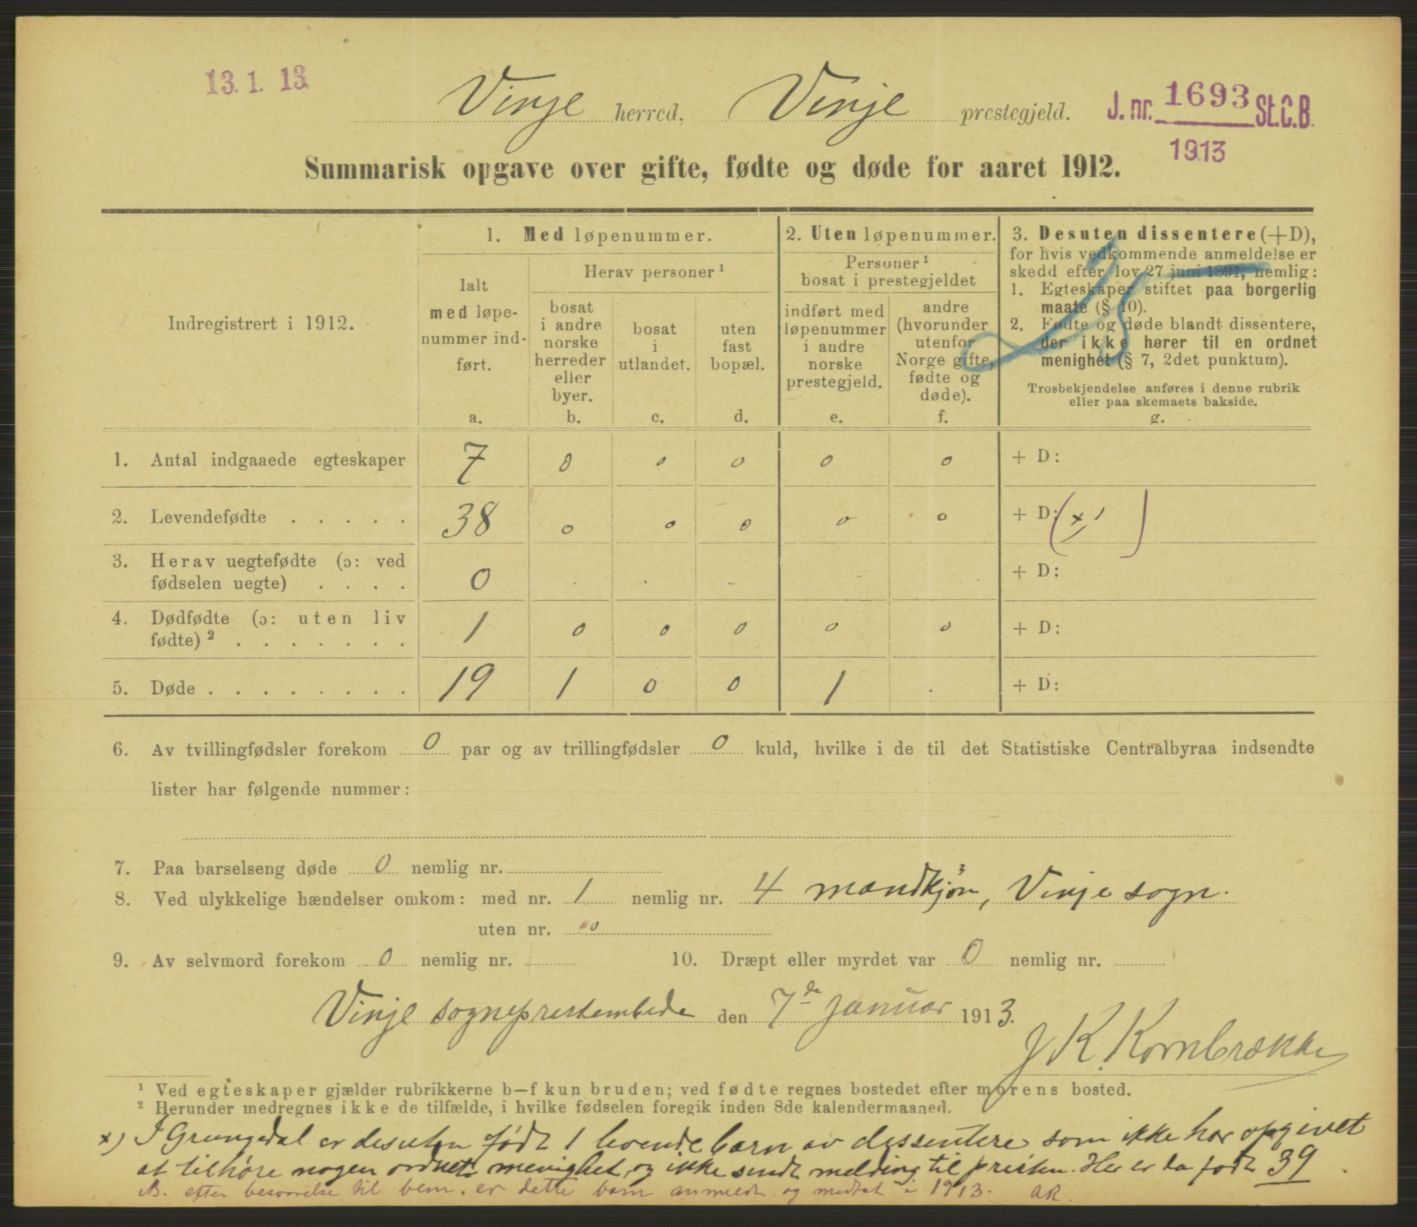 13. 1. 13.
Vinje herred, Vinje prestegjeld.
J. nr. 1693 St.C.B.
1913
Summarisk opgave over gifte, fødte og døde for aaret 1912.
Indregistrert i 1912.
1. Med løpenummer.
Ialt
med løpe-
nummer ind-
ført.
a.
Herav personer ¹
bosat
i andre
norske
herreder
eller
byer.
b.
bosat
i
utlandet.
c.
uten
fast
bopæl.
d.
2. Uten løpenummer.
Personer ¹
bosat i prestegjeldet
indført med
løpenummer
i andre
norske
prestegjeld.
e.
andre
(hvorunder
utenfor
Norge gifte,
fødte og
døde).
f.
3. Desuten dissentere (+D),
for hvis vedkommende anmeldelse er
skedd efter lov 27 juni 1891, nemlig:
1. Egteskaper stiftet paa borgerlig
maate (§ 10).
2. Fødte og døde blandt dissentere,
der ikke hører til en ordnet
menighet (§ 7, 2det punktum).
Trosbekjendelse anføres i denne rubrik
eller paa skemaets bakside.
g.
1. Antal indgaaede egteskaper 7 0 0 0 0 0 + D:
2. Levendefødte . . . . . 38 0 0 0 0 0 + D: (x) 1 )
3. Herav uegtefødte (ɔ: ved
fødselen uegte) . . . . 0 + D:
4. Dødfødte (ɔ: uten liv
fødte) ² . . . . . . . 1 0 0 0 0 0 + D:
5. Døde . . . . . . . . 19 1 0 0 1 . + D:
6. Av tvillingfødsler forekom 0 par og av trillingfødsler 0 kuld, hvilke i de til det Statistiske Centralbyraa indsendte
lister har følgende nummer:
7. Paa barselseng døde 0 nemlig nr.
8. Ved ulykkelige hændelser omkom: med nr. 1 nemlig nr. 4 mandkjøn, Vinje sogn.
uten nr. 0
9. Av selvmord forekom 0 nemlig nr.
10. Dræpt eller myrdet var 0 nemlig nr.
Vinje sogneprestembede den 7de januar 1913.
J K. Kornbrække
¹ Ved egteskaper gjælder rubrikkerne b—f kun bruden; ved fødte regnes bostedet efter morens bosted.
² Herunder medregnes ikke de tilfælde, i hvilke fødselen foregik inden 8de kalendermaaned.
x) I Grungedal er desuten født 1 levende barn av dissentere som ikke har opgivet
at tilhøre nogen ordnet menighet og ikke sendt melding til presten. Her er da født 39.
efter besvarelse til bem. er dette barn anmeldt og medtat i 1913. AR.